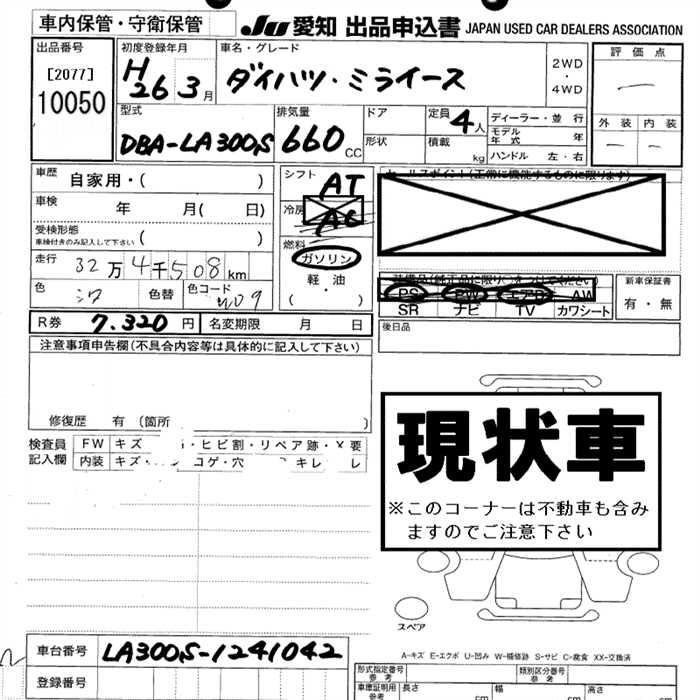 車内保管・守衛保管
JU 愛知 出品申込書 JAPAN USED CAR DEALERS ASSOCIATION
出品番号
[2077]
10050
初度登録年月
H
26 3 月
車名・グレード
ダイハツ・ミライース
2WD
・
4WD
評価点
外装 内装
型式
DBA-LA300S
排気量
660 CC
ドア
形状
定員 4人
積載 kg
ディーラー・並行
モデル
年式 年
ハンドル 左・右
車歴 自家用・( )
車検 年 月( 日)
受検形態
車検付きのみ記入して下さい ( )
走行 32万4千508km
色
色替
色コード W09
シフト AT
冷房 AC
燃料
ガソリン
・
軽油
( ・ )
セールスポイント(正常に機能するものに限ります)
PS PW エアB AW
SR ナビ TV カワシート
新車保証書
有・無
R券 7.320円 名変期限 月 日
後日品
注意事項申告欄(不具合内容等は具体的に記入して下さい)
修復歴 有(箇所 )
検査員
記入欄
FW キズ ・ヒビ割・リペア跡・X要
内装 キズ・ コゲ・穴 キレ レ
現状車
※このコーナーは不動車も含み
ますのでご注意下さい
スペア
A-キズ E-エクボ U-凹み W-補修跡 S-サビ C-腐食 XX-交換済
車台番号 LA300S-1241042
登録番号
形式指定番号
参考
類別区分番号
参考
車庫証明用
参考
長さ cm
幅 cm
高さ cm